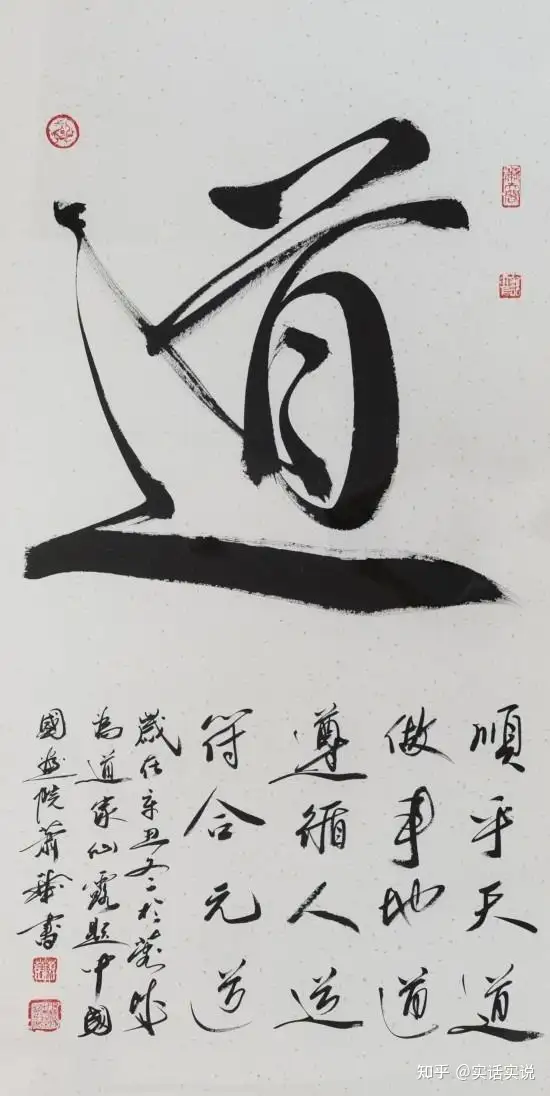 道
順乎天道
做事地道
遵循人道
符合元道
歲在辛丑冬於蓉城
為道家仙霞題中國
國畫院蕭書
知乎 @实话实说